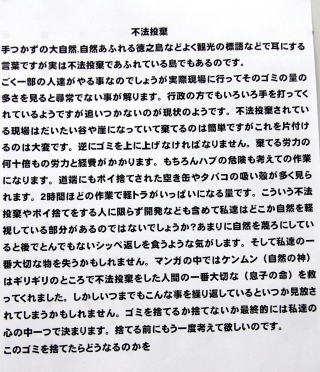 不法投棄
手つかずの大自然.自然あふれる徳之島などよく観光の標語などで耳にする
言葉ですが実は不法投棄であふれている島でもあるのです。
ごく一部の人達がやる事なのでしょうが実際現場に行ってそのゴミの量の
多さを見ると尋常でない事が解ります。行政の方でもいろいろ手を打ってく
れているようですが追いつかないのが現状のようです。不法投棄されてい
る現場はだいたい谷や崖になっていて棄てるのは簡単ですがこれを片付け
るのは大変です。逆にゴミを上に上げなければなりません。棄てる労力の
何十倍もの労力と経費がかかります。もちろんハブの危険も考えての作業
になります。道端にもポイ捨てされた空き缶やタバコの吸い殻が多く見ら
れます。2時間ほどの作業で軽トラがいっぱいになる量です。こういう不法
投棄やポイ捨てをする人に限らず開発なども含めて私達はどこか自然を軽
視している部分があるのではないでしょうか?あまりに自然を蔑ろにしてい
ると後でとんでもないシッペ返しを食うような気がします。そして私達の一
番大切な物を失うかもしれません。マンガの中ではケンムン（自然の神）
はギリギリのところで不法投棄をした人間の一番大切な（息子の命）を救
ってくれました。しかしいつまでもこんな事を繰り返しているといつか見放さ
れてしまうかもしれません。ゴミを捨てるか捨てないか最終的には私達の
心の中一つで決まります。捨てる前にもう一度考えて欲しいのです。
このゴミを捨てたらどうなるのかを